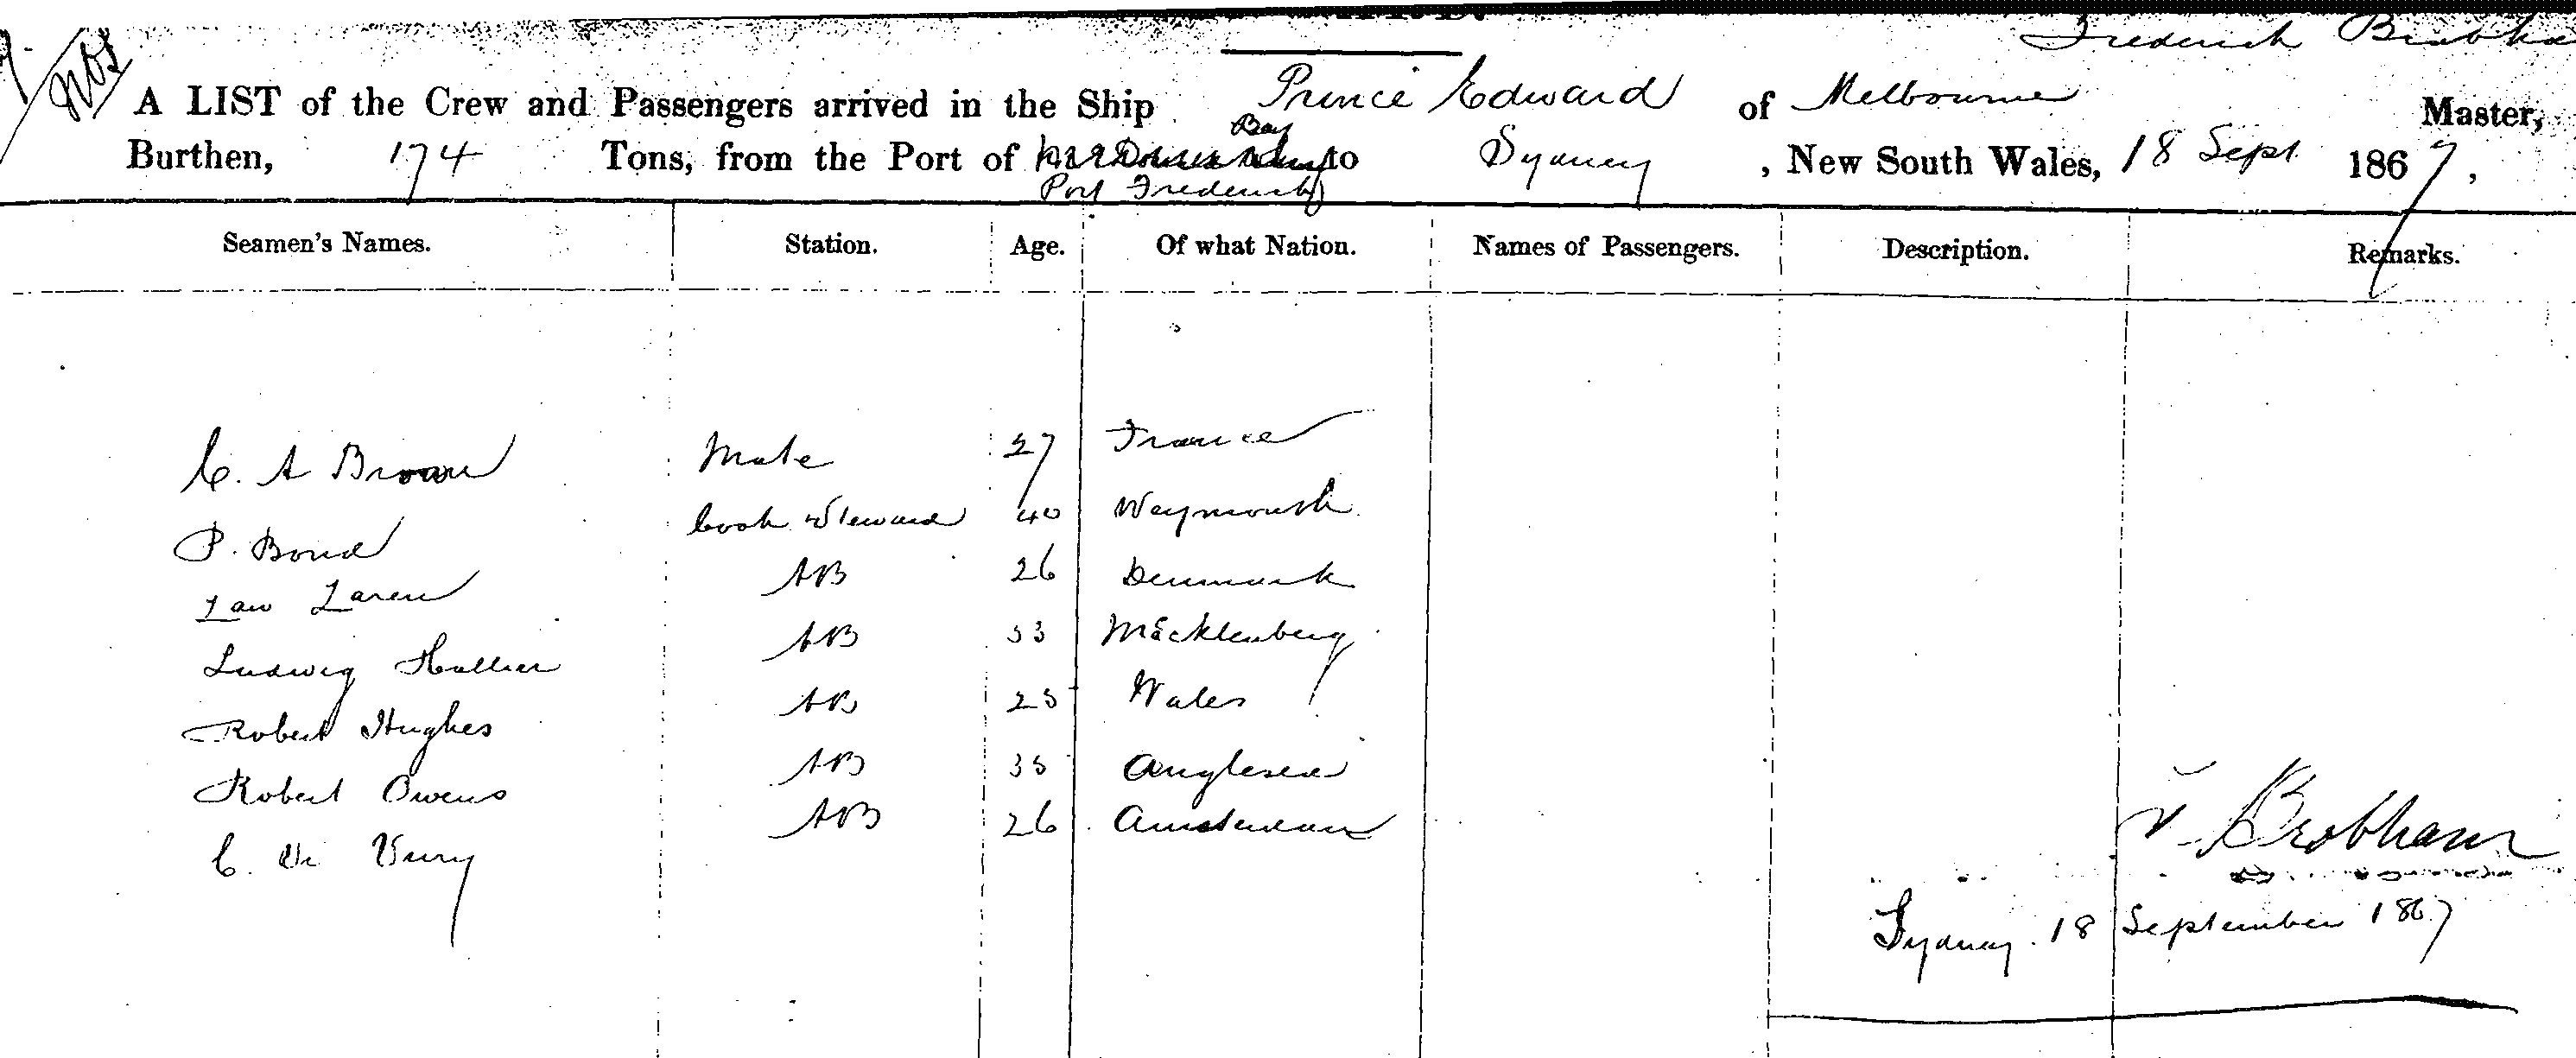 Frederick Brabham
Nos
A LIST of the Crew and Passengers arrived in the Ship Prince Edward of Melbourne Master,
Bay
Burthen, 174 Tons, from the Port of to Sydney, New South Wales, 18 Sept 1867,
Port Frederick
Seamen's Names. Station. Age. Of what Nation. Names of Passengers. Description. Remarks.
C. A Brown Mate 27 France
P. Bond Cook Steward 40 Weymouth
Law Laren AB 26 Denmark
Ludwig Hallier AB 33 Mecklenberg
Robert Hughes AB 25 Wales
Robert Owens AB 35 Anglesea
C. De Vury AB 26 Amsterdam
F Brabham
Sydney 18 September 1867